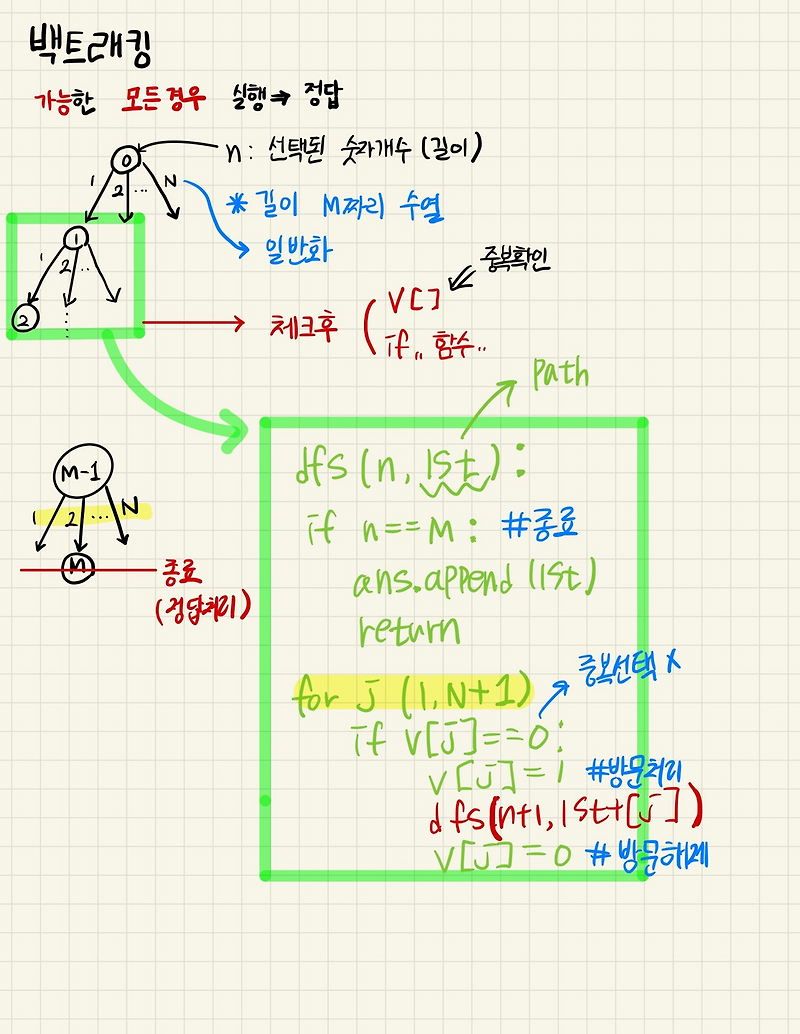 백트래킹
가능한 모든경우 실행→ 정답
0 n: 선택된 숫자개수 (길이)
1 2 ... N
* 길이 M짜리 수열
일반화
1
1 2 ..
2
중복확인
체크후 ( V[]
if,, 함수..
path
dfs(n, lst):
if n==M: #종료
ans.append(lst)
return
for j (1, N+1)
중복선택 X
if v[j]==0:
v[j]=1 #방문처리
dfs(n+1, lst+[j])
v[j]=0 # 방문해제
M-1
1 2 ... N
M 종료
(정답처리)